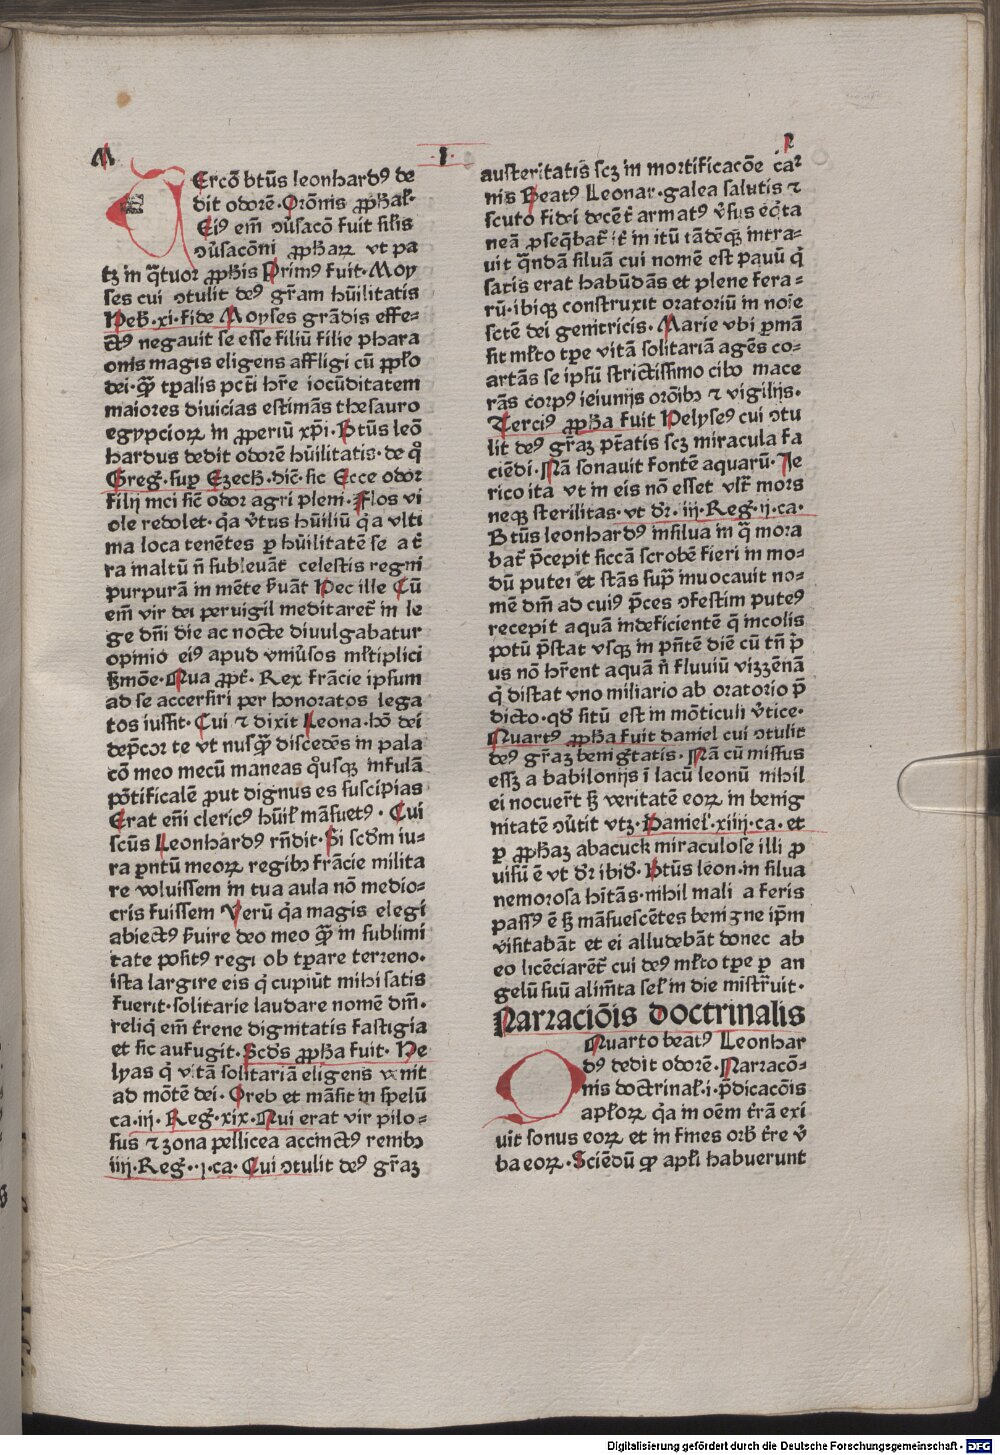 M · I · 2
TErcō btūs leonhardꝰ de
dit odorē · Orōnis ꝓpħal̄ ·
Eiꝰ em̄ ↄūsacō fuit silis
ↄūsacōni ꝓpħaꝝ vt pa
tꝫ in q̄tuor ꝓpħis Primꝰ fuit · Moy
ses cui ↄtulit deꝰ gr̄am hūilitatis
Heb̄ · xi · fide Moyses grādis effe⸗
ctꝰ negauit se esse filiū filie phara
onis magis eligens affligi cū ꝓpl̄o
dei · q̄ꝫ tp̄alis pct̄i hr̄e iocūditatem
maiores diuicias estimās thesauro
egypcioꝝ in ꝓperiū xp̄i · Btūs leō
hardus dedit odorē hūilitatis · de qͦ
Greḡ · sup̄ Ezech̄ · dic̄ · sic Ecce odor
filij mei sic̄ odor agri pleni · Flos vi
ole redolet · qa v̄tus hūiliū qa vlti
ma loca tenētes ꝑ hūilitatē se a t̄
ra inaltū n̄ subleuāt celestis regni
purpurā in mēte ẜuāt Hec ille Cū
em̄ vir dei peruigil meditaret̄ in le
ge dn̄i die ac nocte diuulgabatur
opinio eiꝰ apud vniūsos ml̄tiplici
ẜmōe · Qua ꝓpt̄ · Rex frācie ipsum
ad se accersiri per honoratos lega
tos iussit · Cui ⁊ dixit Leona · hō dei
dep̄cor te vt nusq̄ꝫ discedēs in pala
cō meo mecū maneas qͦusqꝫ infulā
pōtificalē ꝓut dignus es suscipias
Erat em̄ clericꝰ hūil̄ māsuetꝰ · Cui
scūs Leonhardꝰ rn̄dit · Si scd̄m iu⸗
ra pn̄tū meoꝝ regibꝫ frācie milita
re voluissem in tua aula nō medio⸗
cris fuissem Verū qa magis elegi
abiectꝰ ẜuire deo meo q̄ꝫ in sublimi
tate positꝰ regi ob tp̄are terreno ·
ista largire eis qͥ cupiūt mihi satis
fuerit · solitarie laudare nomē dm̄ ·
reliq̄ em̄ t̄rene dignitatis fastigia
et sic aufugit · Scd̄s ꝓpħa fuit · He
lyas qͥ vitā solitariā eligens venit
ad mōtē dei · Oreb et māsit in spelū
ca · iij · Reḡ · xix · Qui erat vir pilo⸗
sus ⁊ zona pellicea accinctꝰ renibꝫ
iiij · Reḡ · j · ca · Cui ↄtulit deꝰ gr̄aꝫ
austeritatis scꝫ in mortificacōe car
nis Beatꝰ Leonar · galea salutis ⁊
scuto fidei decēt̄ armatꝰ v̄sus eq̄ta
neā ꝓseq̄bat̄ it̄ in itū iādēqꝫ intra⸗
uit q̄ndā siluā cui nomē est pauū qͥ
satis erat habūdās et plene fera⸗
rū · ibiqꝫ construxit oratoriū in noīe
scte̅ dei genitricis · Marie vbi ꝑmā
sit ml̄to tp̄e vitā solitariā agēs co⸗
artās se ipsū strictissimo cibo mace
rās corpꝰ ieiunijs orōibꝫ ⁊ vigilijs ·
Terciꝰ ꝓpħa fuit Helyseꝰ cui ↄtu
lit deꝰ gr̄aꝫ p̄tatis scꝫ miracula fa
ciēdi · Nā sonauit fontē aquarū · Je
rico ita vt in eis nō esset vlt̄ mors
neqꝫ sterilitas · vt dr̄ · iiij · Reḡ · ij · ca ·
Btūs leonhardꝰ insilua in q̄ mora
bat̄ p̄cepit siccā scrobē fieri in mo⸗
dū putei et stās sup̄ inuocauit no⸗
mē dm̄ ad cuiꝰ p̄ces ↄfestim puteꝰ
recepit aquā indeficientē q̄ incolis
potū p̄stat vsqꝫ in pn̄tē diē cū tn̄ pͥ
us nō hr̄ent aquā n̄ fluuiū vizzēnā
qͥ distat vno miliario ab oratorio p̄
dicto · qd̄ sitū est in mōticuli v̄tice ·
Quartꝰ ꝓpħa fuit daniel cui ↄtulit
deꝰ gr̄aꝫ benig̅tatis · Nā cū missus
essꝫ a babilonijs ī lacū leonū nihil
ei nocuer̄t ẜꝫ veritatē eoꝝ in benig
nitatē ↄūtit vtꝫ · Daniel̄ · xiiij · ca · et
ꝑ ꝓpħaꝫ abacuck miraculose illi ꝓ
uisū ē vt dr̄ ibid̄ · Btūs leon · in silua
nemorosa hītās · nihil mali a feris
passꝰ ē ẜꝫ māsuescētes benigne ip̄m
visitabāt et ei alludebāt donec ab
eo licēciarēt̄ cui deꝰ ml̄to tp̄e ꝑ an
gelū suū alim̄ta sel̄ in die mistr̄uit ·
Narraciōis doctrinalis
QUarto beatꝰ Leonhar
dꝰ dedit odorē · Narracō⸗
nis doctrinal̄ · i · p̄dicacōis
apl̄oꝝ qa in oēm t̄rā exi
uit sonus eoꝝ et in fines orb̄ t̄re v̄
ba eoꝝ · Sciēdū ꝙ apl̄i habuerunt
Digitalisierung gefördert durch die Deutsche Forschungsgemeinschaft - DFG